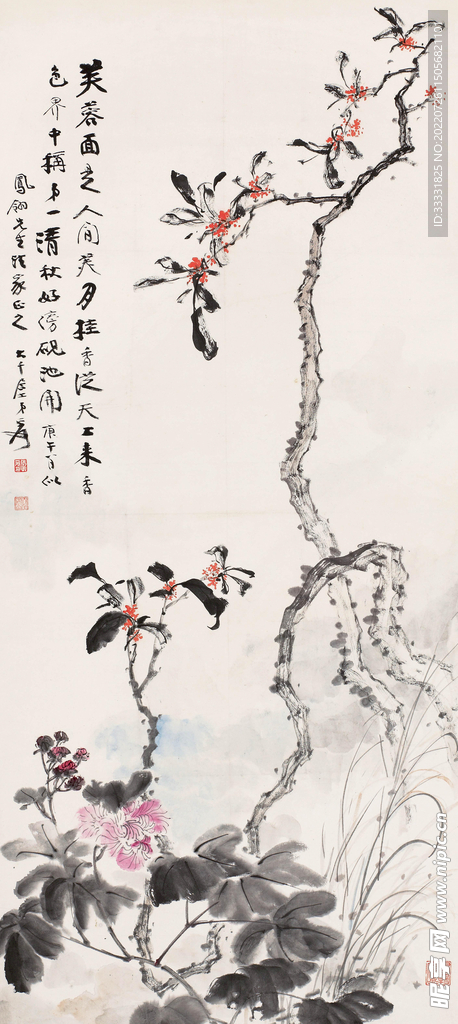 芙蓉面是人間美月桂香從天上来香
色界中稱第一清秋好傍硯池開庚午首似
鳳翎先生
方家正之大千居士爰
ID:33331825 NO:20220726115056821101
昵享网 www.nipic.cn